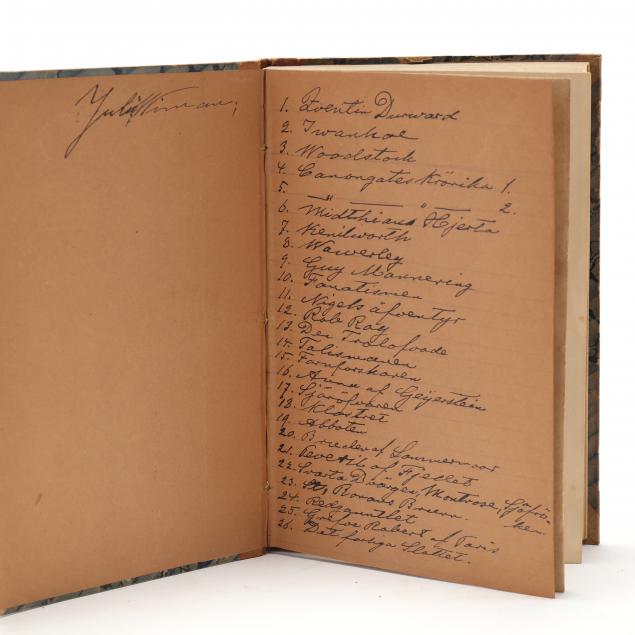 1. Qventin Durward
2. Iwanhoe
3. Woodstock
4. Canongates Krönika 1.
5. — " — " — 2.
6. Midthians Hjerta
7. Kenilworth
8. Wawerley
9. Guy Mannering
10. Fanatismen
11. Nigels äfventyr
12. Rob Roy
13. De Trolofvade
14. Talismanen
15. Fornforskaren
16. Anna af Geijerstein
17. Sjöröfvaren
18. Klostret
19. Abboten
20. Bruden af Lammermoor
21. Peveril af Fjellet
22. Svarta Dvärgen, Montrose, Sjöfrö-
ken.
23. St. Ronans Brunn.
24. Redgauntlet
25. Grefve Robert af Paris
26. Det farliga Slottet.